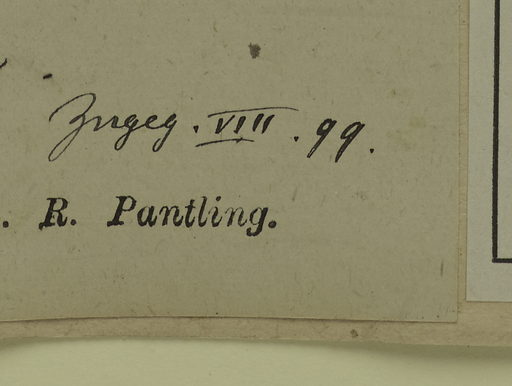 Zugeg. VIII. 99.
. R. Pantling.